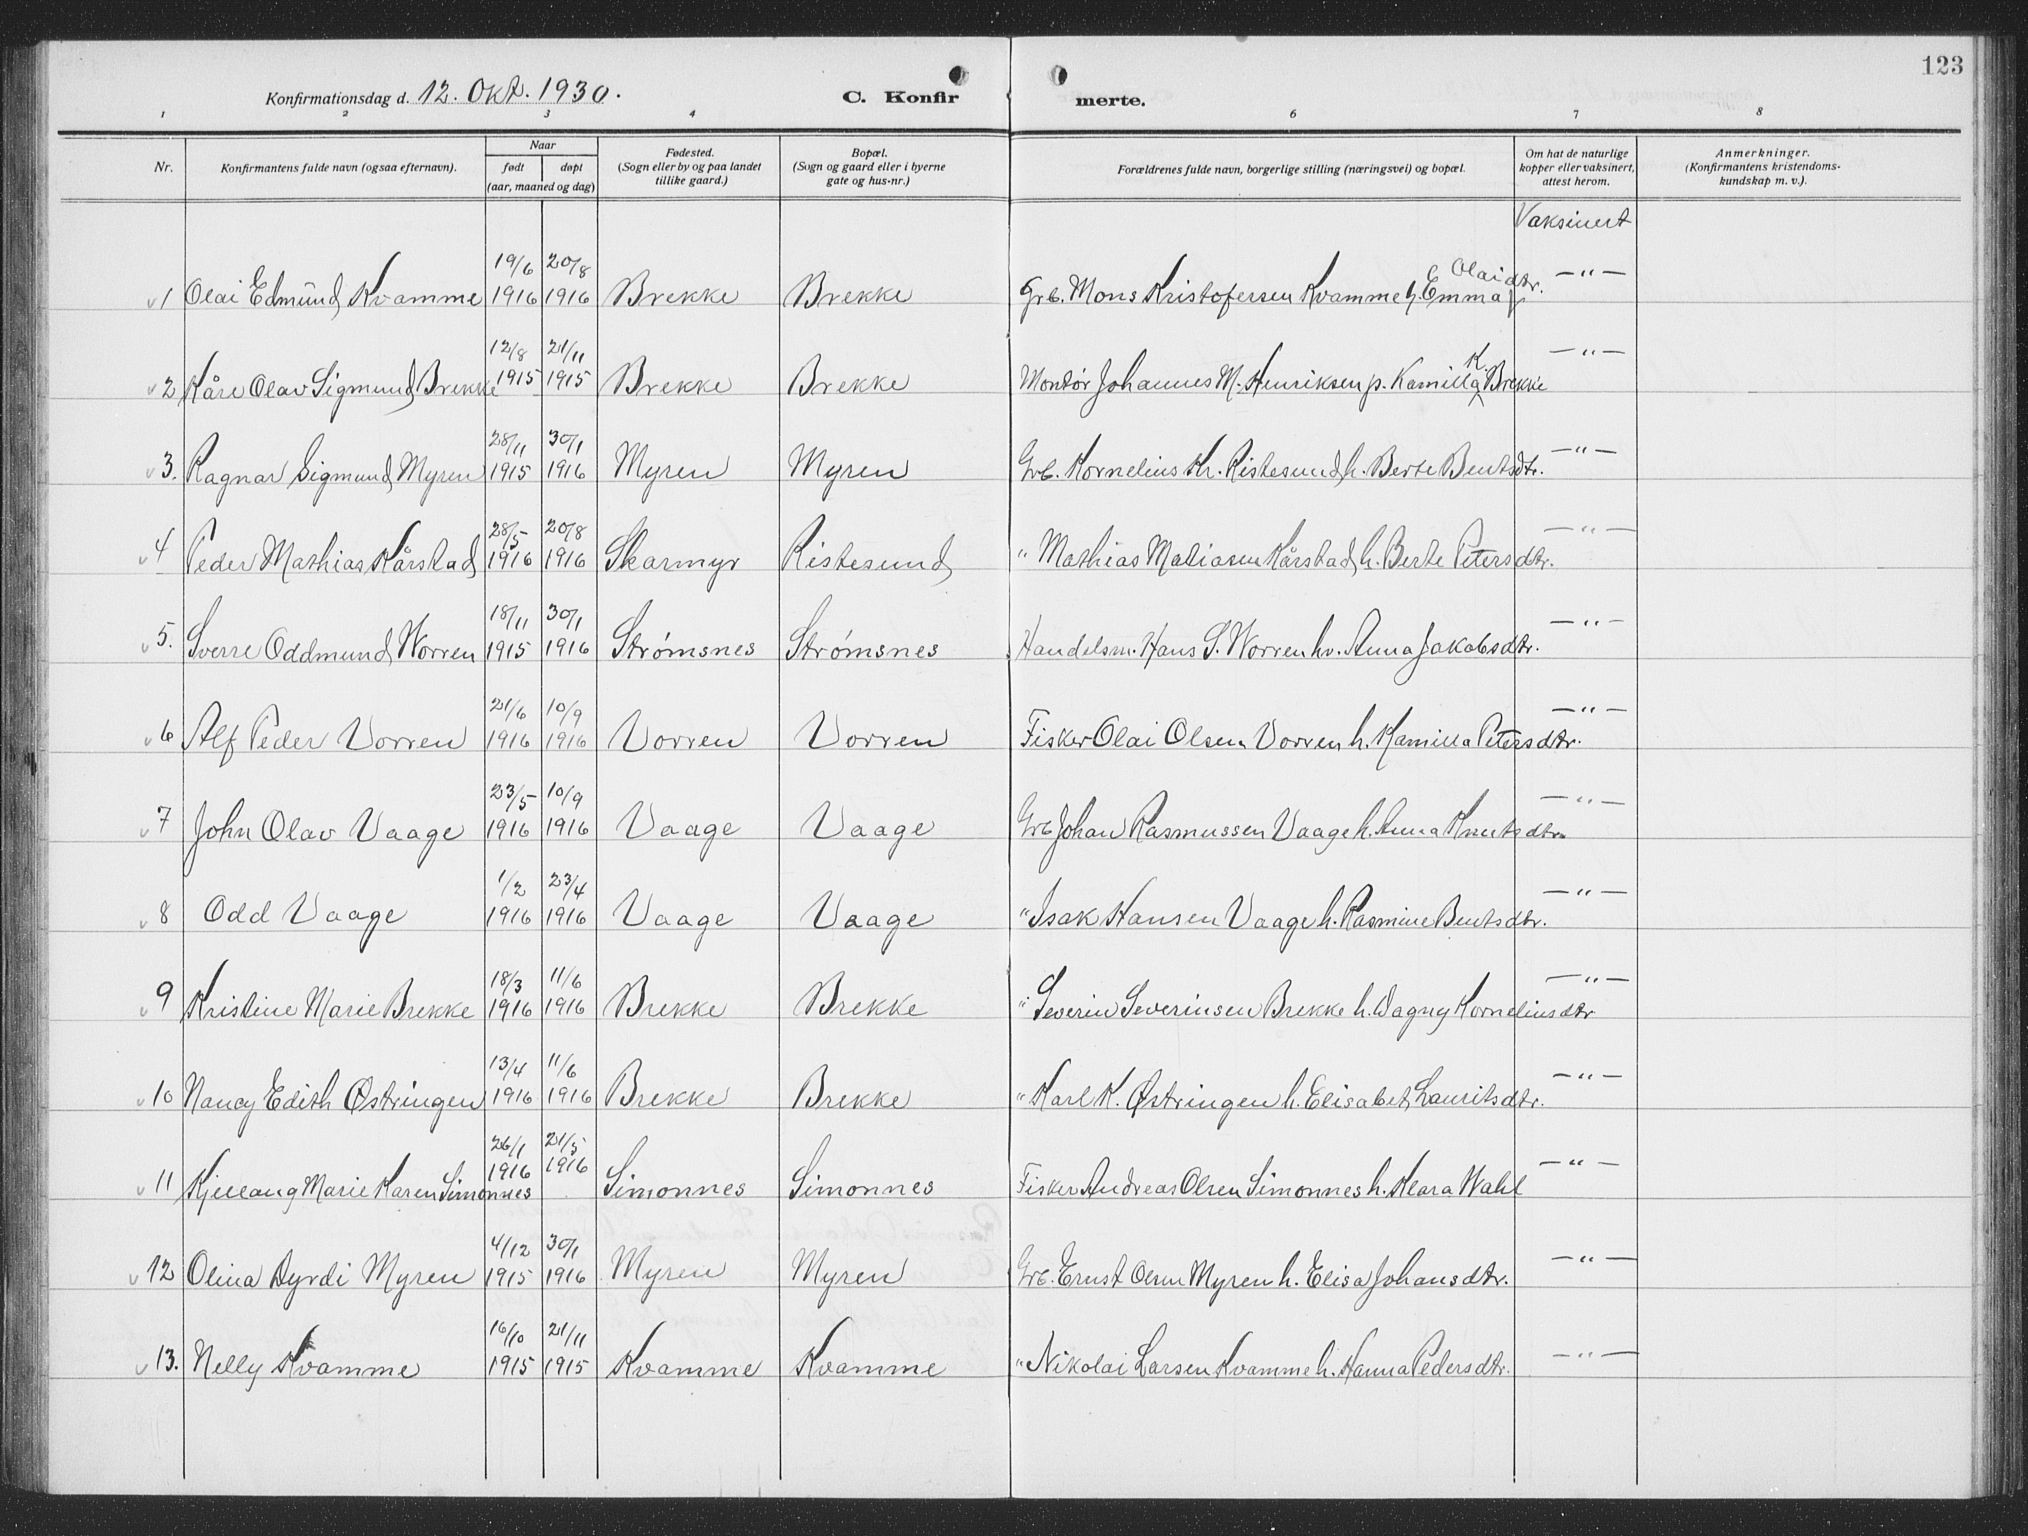 123
Konfirmationsdag d. 12. Okt. 1930.
C. Konfirmerte.
1 2 3 4 6 7 8
Nr. Konfirmantens fulde navn (ogsaa efternavn). Naar født døpt (aar, maaned og dag) Fødested. (Sogn eller by og paa landet tillike gaard.) Bopæl. (Sogn og gaard eller i byerne gate og hus-nr.) Forældrenes fulde navn, borgerlige stilling (næringsvei) og bopæl. Om hat de naturlige kopper eller vaksinert, attest herom. Anmerkninger. (Konfirmantens kristendomskundskap m. v.).
Vaksinert
v 1 Olai Edmund Kvamme 19/6 1916 20/8 1916 Brekke Brekke Grb. Mons Kristofersen Kvamme h. Emma E Olaidtr. —"—
v 2 Kåre Olav Sigmund Brekke 12/8 1915 21/11 1915 Brekke Brekke Montør Johannes M. Henriksen p. Kamilla K. Brekke —"—
v 3. Ragnar Sigmund Myren 28/11 1915 30/1 1916 Myren Myren Grb. Kornelius Kr. Ristesund h. Berte Bentsdtr. —"—
v 4 Peder Mathias Kårstad 28/5 1916 20/8 1916 Skarmyr Ristesund " Mathias Matiasen Kårstad h. Berte Petersdtr. —"—
v 5. Sverre Oddmund Worren 18/11 1915 30/1 1916 Strømsnes Strømsnes Handelsm. Hans S. Worren hv. Anna Jakobsdtr. —"—
v 6 Alf Peder Vorren 21/6 1916 10/9 1916 Vorren Vorren Fisker Olai Olsen Vorren h. Kamilla Petersdtr. —"—
v 7 John Olav Vaage 23/5 1916 10/9 1916 Vaage Vaage Grb Johan Rasmussen Vaage h. Anna Knutsdtr. —"—
v 8 Odd Vaage 1/2 1916 23/4 1916 Vaage Vaage " Isak Hansen Vaage h. Rasmine Bentsdtr. —"—
v 9 Kristine Marie Brekke 18/3 1916 11/6 1916 Brekke Brekke " Severin Severinsen Brekke h. Dagny Korneliusdtr —"—
v 10 Nancy Edith Østringen 13/4 1916 11/6 1916 Brekke Brekke " Karl K. Østringen h. Elisabet Lauritsdtr. —"—
v 11 Kjellaug Marie Karen Simonnes 26/1 1916 21/5 1916 Simonnes Simonnes Fisker Andreas Olsen Simonnes h. Klara Wahl —"—
v 12 Olina Dyrdi Myren 4/12 1915 30/1 1916 Myren Myren Grb. Ernst Olsen Myren h. Elisa Johansdtr. —"—
v 13. Nelly Kvamme 16/10 1915 21/11 1915 Kvamme Kvamme " Nikolai Larsen Kvamme h. Hanna Pedersdtr. —"—